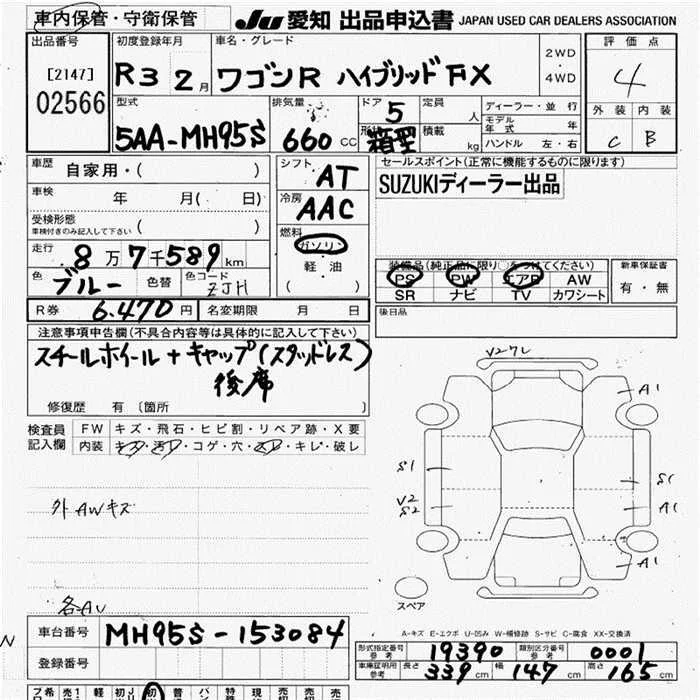 車内保管・守衛保管
JU 愛知 出品申込書 JAPAN USED CAR DEALERS ASSOCIATION
出品番号
[2147]
02566
初度登録年月
R3 2月
車名・グレード
ワゴンR ハイブリッドFX
2WD
・
4WD
評価点
4
外装 内装
C B
型式
5AA-MH95S
排気量
660 CC
ドア
5
形状
箱型
定員
人
積載
kg
ディーラー・並行
モデル年式 年
ハンドル 左・右
車歴 自家用・( )
車検 年 月( 日)
受検形態
車検付きのみ記入して下さい ( )
走行 8万7千589km
色 ブルー 色替 色コード ZJH
シフト AT
冷房 AAC
燃料
ガソリン
・
軽・油
( )
セールスポイント(正常に機能するものに限ります)
SUZUKIディーラー出品
装備品(純正品に限り○をつけてください)
PS PW エアB AW
SR ナビ TV カワシート
新車保証書
有・無
R券 6.470円 名変期限 月 日
後日品
注意事項申告欄(不具合内容等は具体的に記入して下さい)
スチールホイール+キャップ(スタッドレス)
後席
修復歴 有〔箇所 〕
検査員記入欄
FW キズ・飛石・ヒビ割・リペア跡・X要
内装 キズ・汚レ・コゲ・穴・スレ・キレ・破レ
外AWキズ
各AU
V2クレ
A1
S1
S1
V2
S2
A1
A1
スペア
A-キズ E-エクボ U-凹み W-補修跡 S-サビ C-腐食 XX-交換済
車台番号 MH95S-153084
登録番号
形式指定番号 参考 19390 類別区分番号 参考 0001
車庫証明用 参考 長さ 339cm 幅 147cm 高さ 165cm